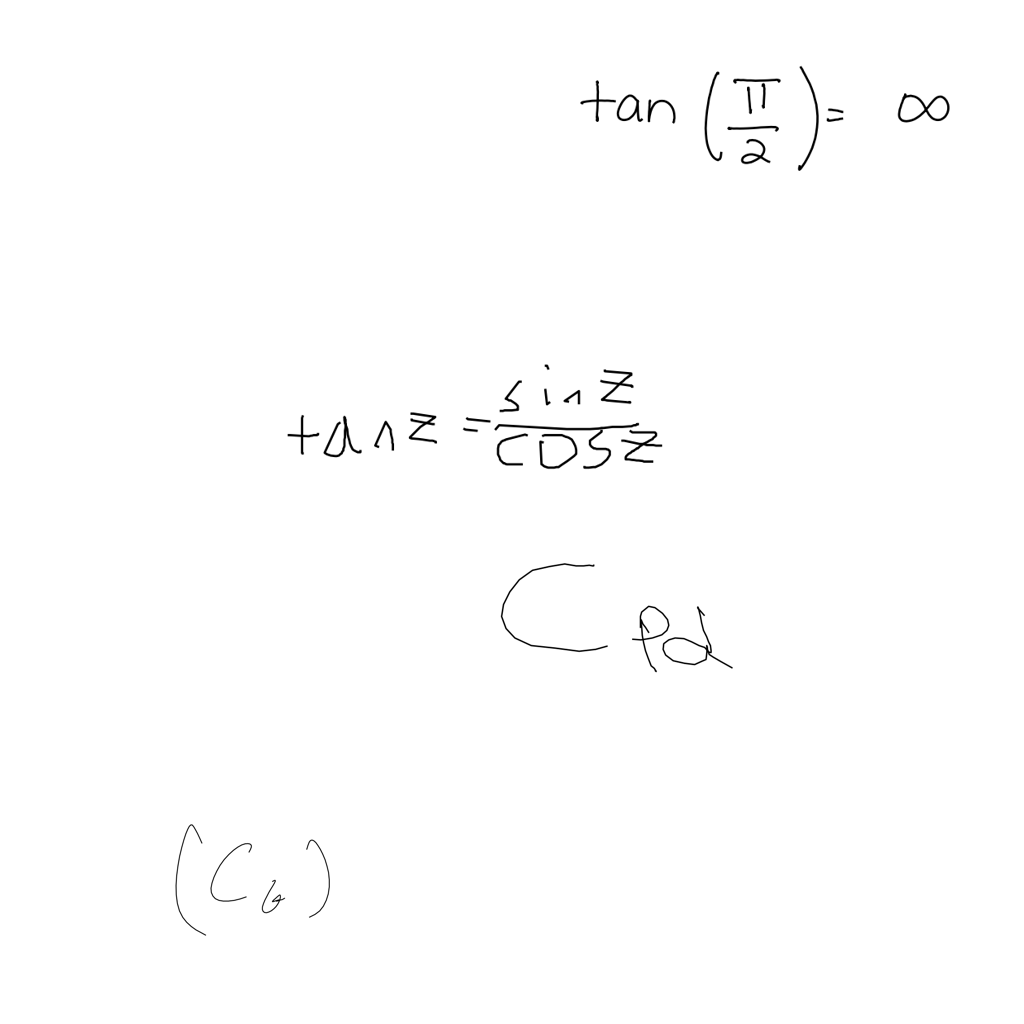 tan(π/2) = ∞
tan z = sin z / cos z
C_pd
(C_6)